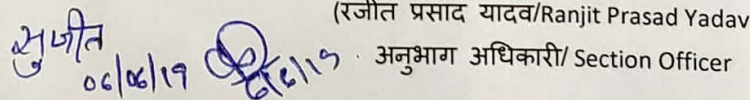 (रजीत प्रसाद यादव/Ranjit Prasad Yadav
सुजीत
अनुभाग अधिकारी/ Section Officer
06/06/19 6/6/19